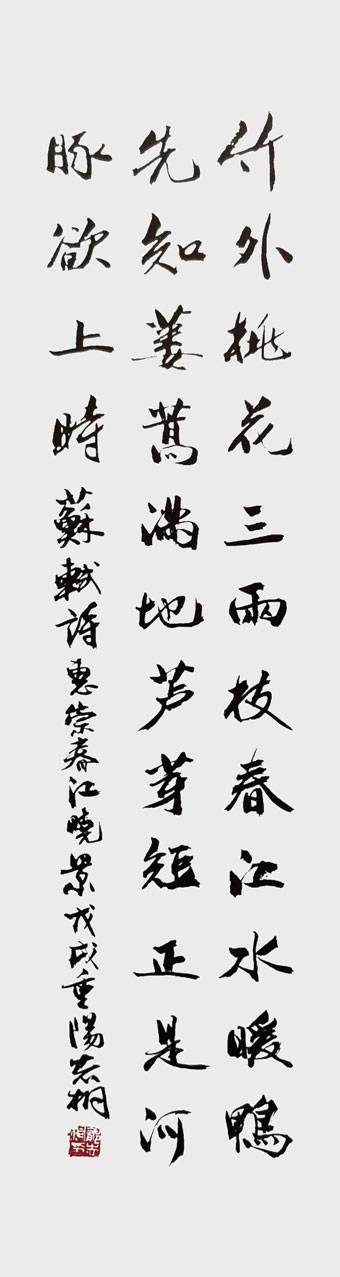 竹外桃花三兩枝春江水暖鴨
先知蒌蒿滿地芦芽短正是河
豚欲上時蘇軾詩惠崇春江曉景戊戌重陽志桐